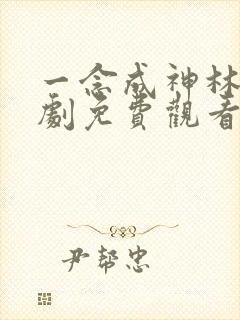 一念成神林
劇免費觀看
尹幫忠